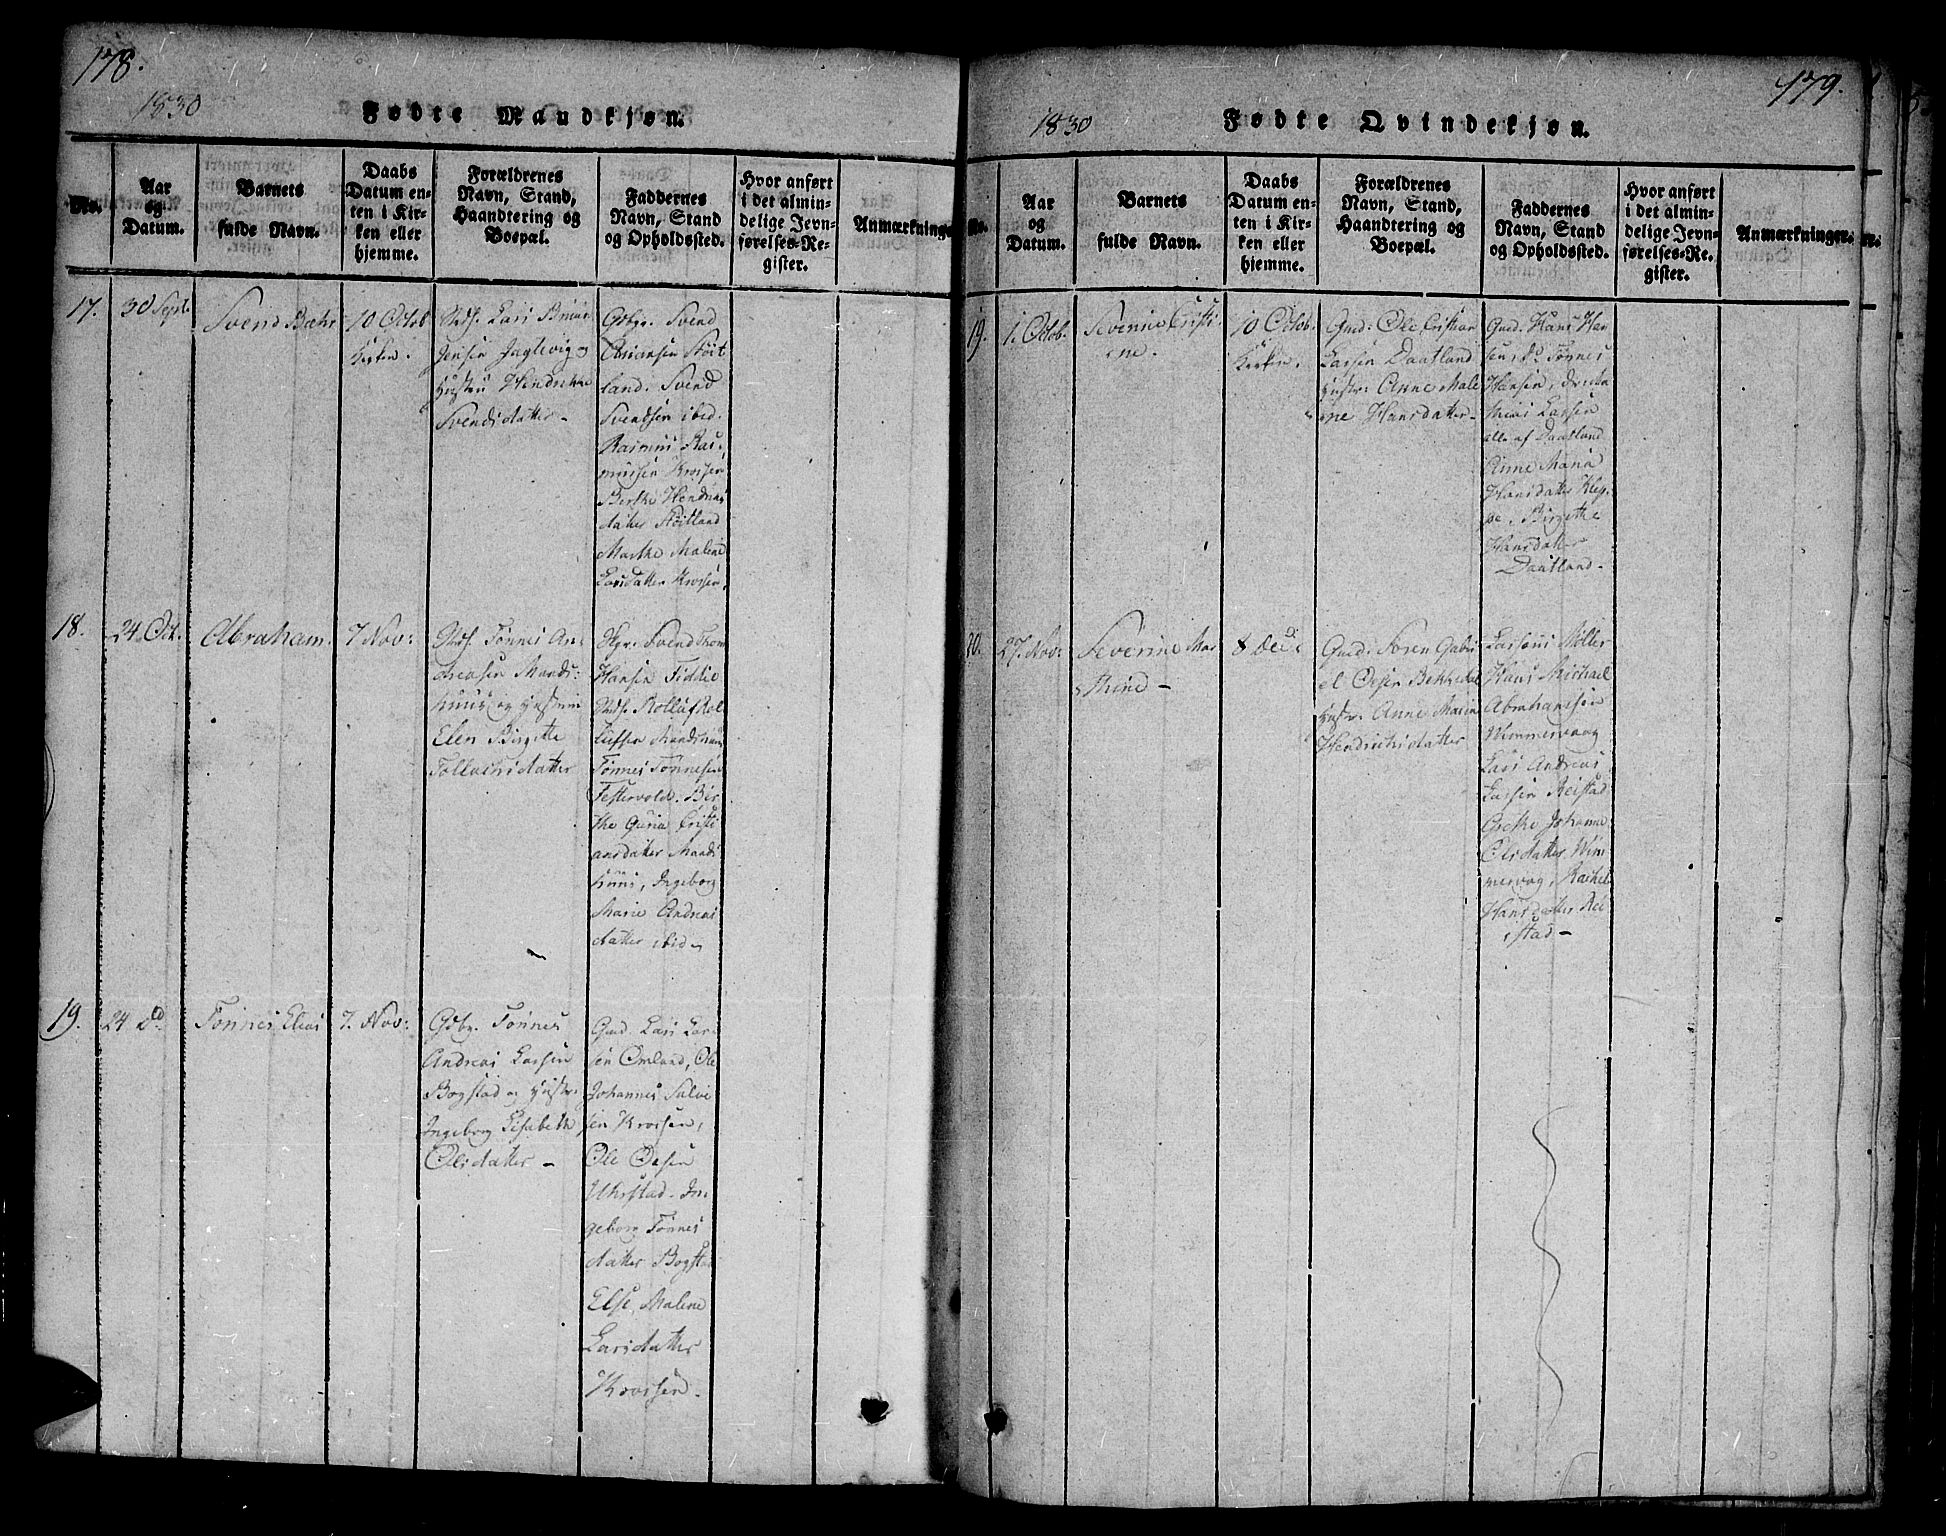 178.
1830
Fødte Mandkjøn.
No.
Aar
og
Datum.
Barnets
fulde Navn.
Daabs
Datum en-
ten i Kir-
ken eller
hjemme.
Forældrenes
Navn, Stand,
Haandtering og
Boepæl.
Faddernes
Navn, Stand
og Opholdssted.
Hvor anført
i det almin-
delige Jevn-
førelses-Re-
gister.
Anmærkninger
17.
30 Sept.
Svend Bæhr
10 Octob
Kirken.
Lars
Jensen Jaglevig
Hendrikke
Svendsdatter -
Svend
Asiansen Stöit
land. Svend
Svendsen ibid.
Rasmus Ras-
mussen Krossen
Berthe Hendriks
datter Stöitland
Marthe Malene
Larsdatter Krossen.
18.
24 Oct.
Abraham.
7 Nov:
Tönnes An-
dreasen Mands-
huus og
Elen Birgitte
Tollachsdatter
Svend Thom
Hansen Fiddie
Rolluf Rol
lufsen Mandshuus
Tönnes Tönnesen
Festervold. Ber
the Guria Cristi
ansdatter Mands
huus, Ingeborg
Marie Andreas
datter ibid
19.
24 Do
Tönnes Elias
7. Nov:
Gdbr. Tönnes
Andreas Larsen
Bogstad og
Ingeborg Elisabeth
Olsdatter -
Gmd. Lars Lar-
sen Omland, Ole
Johannes Salve
sen Krossen,
Ole Olsen
Uhrstad. In-
geborg Tönnes
datter Bogstad
Else Malene
Larsdatter
Krossen.
179.
1830
Fødte Qvindekjøn.
No.
Aar
og
Datum.
Barnets
fulde Navn.
Daabs
Datum en-
ten i Kir-
ken eller
hjemme.
Forældrenes
Navn, Stand,
Haandtering og
Boepæl.
Faddernes
Navn, Stand
og Opholdssted.
Hvor anført
i det almin-
delige Jevn-
førelses-Re-
gister.
Anmærkninger.
19.
1. Octob.
Severine Cristi
ne.
10 Octob.
Kirken.
Gmd: Ole Cristian
Larsen Daatland
Hustr: Anne Male
ne Hansdatter-
Gmd: Hans Han
sen, do Tönnes
Hansen,
Larsen
alle af Daatland
Anne Maria
Hansdatter Klep-
pe, Birgitte
Hansdatter
Daatland-
20.
27. Nov:
Severine Mar
thine -
8 Dec:
Gmd: Sören Gabri
el Olsen Bekkedal
Hustr: Anne Marie
Hendrichsdatter
Möller
Hans Michael
Abrahamsen
Wimmervaag
Lars Andreas
Larsen Reistad
Grethe Johanne
Olsdatter Wim
mervog, Rachel
Hansdatter Rei
stad -